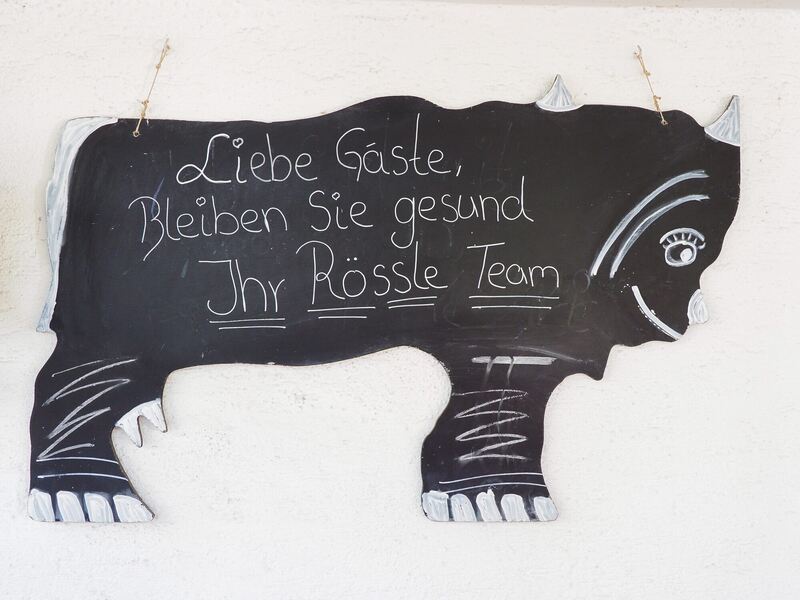 Liebe Gäste,
Bleiben Sie gesund
Ihr Rössle Team